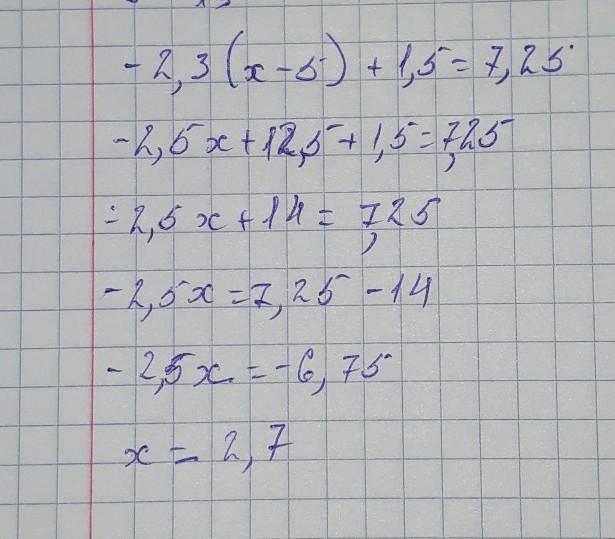 - 2,3 (x - 5) + 1,5 = 7,25
- 2,5x + 12,5 + 1,5 = 7,25
- 2,5x + 14 = 7,25
- 2,5x = 7,25 - 14
- 2,5x = -6,75
x = 2,7